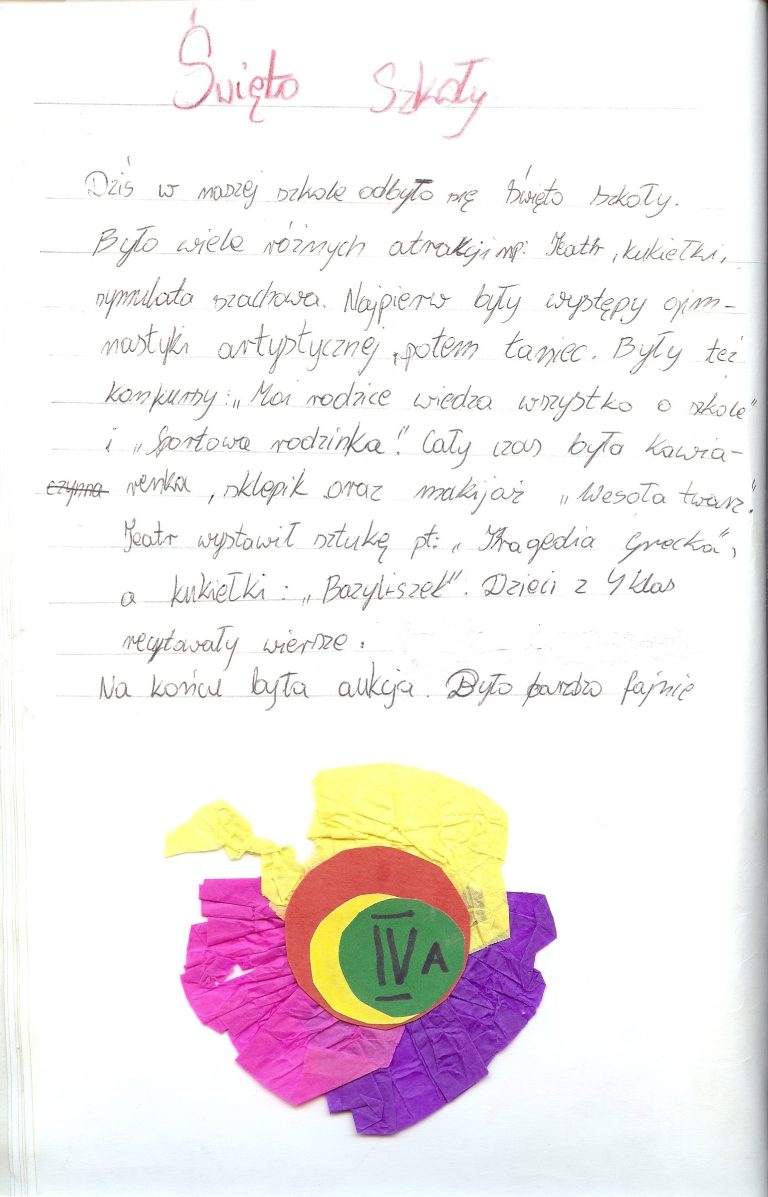 Święto Szkoły
Dziś w naszej szkole odbyło się Święto szkoły.
Było wiele różnych atrakcji np: Teatr, kukiełki,
symulata szachowa. Najpierw były występy gim-
nastyki artystycznej, potem taniec. Były też
konkursy: „Moi rodzice wiedza wszystko o szkole"
i „Sportowa rodzinka". Cały czas była kawia-
czynna renka, sklepik oraz makijaż „Wesoła twarz".
Teatr wystawił sztukę pt: „Tragedia Grecka",
a kukiełki: „Bazyliszek". Dzieci z 4 klas
recytowały wiersze.
Na końcu była aukcja. Było bardzo fajnie
IV A